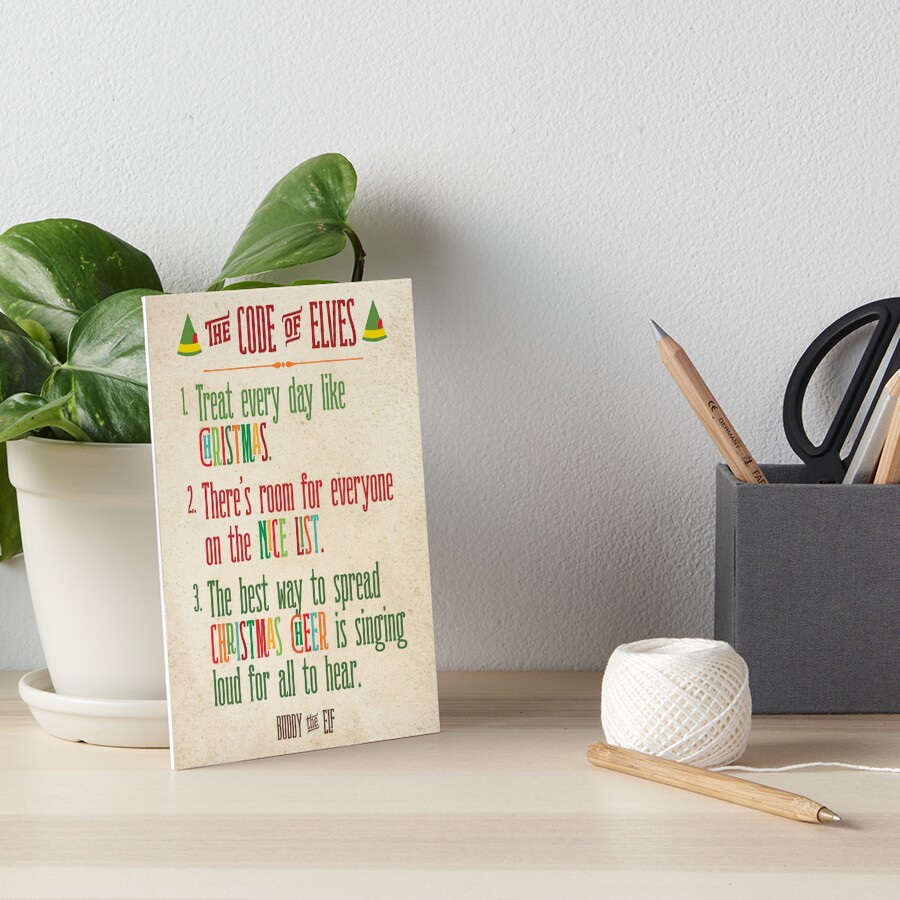 THE CODE OF ELVES
1. Treat every day like
CHRISTMAS.
2. There's room for everyone
on the NICE LIST.
3. The best way to spread
CHRISTMAS CHEER is singing
loud for all to hear.
BUDDY the ELF
CE GERMANY